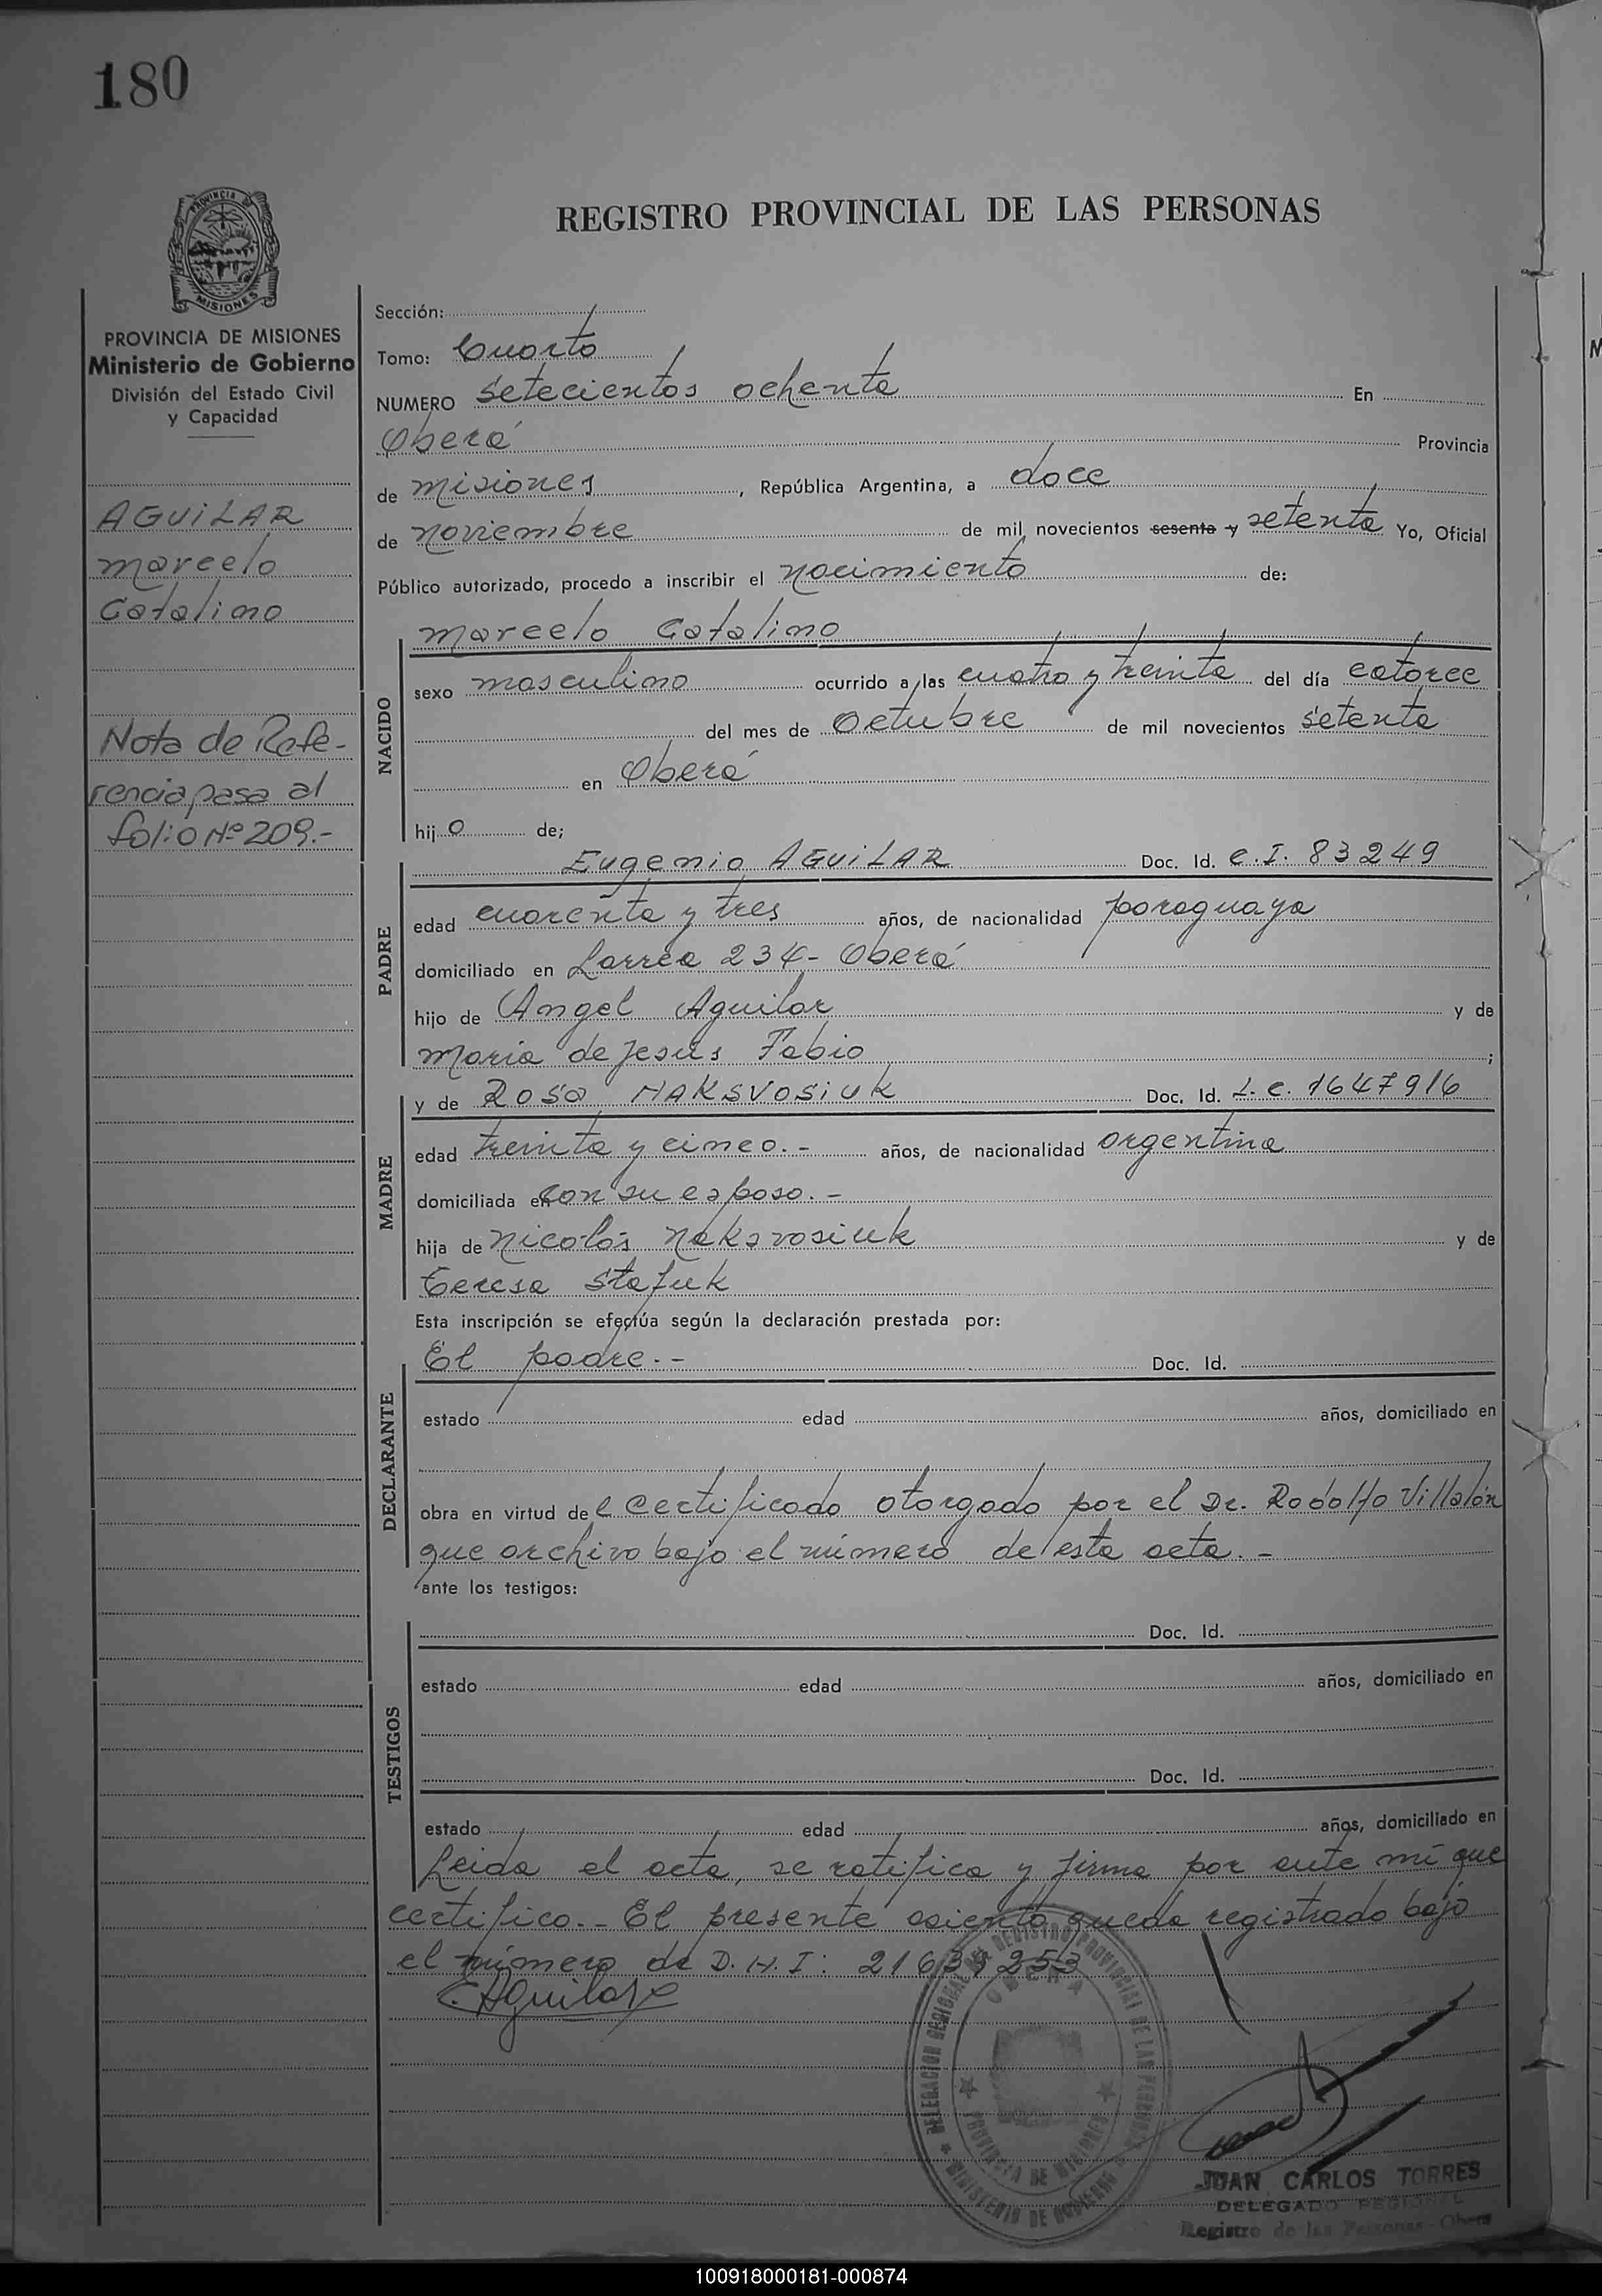 180
PROVINCIA DE
MISIONES
PROVINCIA DE MISIONES
Ministerio de Gobierno
División del Estado Civil
y Capacidad
AGUILAR
Marcelo
Catalino
Nota de Refe-
rencia pasa al
folio Nº 209.-
REGISTRO PROVINCIAL DE LAS PERSONAS
Sección:
Tomo: Cuarto
NUMERO Setecientos ochenta En
Oberá Provincia
de Misiones, República Argentina, a doce
de noviembre de mil novecientos sesenta y setenta Yo, Oficial
Público autorizado, procedo a inscribir el nacimiento de:
Marcelo Catalino
NACIDO
sexo masculino ocurrido a las cuatro y treinta del día catorce
del mes de Octubre de mil novecientos setenta
en Oberá
hijo de;
Eugenio AGUILAR Doc. Id. C.I. 83249
PADRE
edad cuarenta y tres años, de nacionalidad paraguaya
domiciliado en Larrea 234- Oberá
hijo de Angel Aguilar y de
Maria de Jesús Fabio;
y de Rosa NAKSVOSIUK Doc. Id. L.C. 1647916
MADRE
edad treinta y cinco.- años, de nacionalidad argentina
domiciliada en con su esposo.-
hija de Nicolás Naksvosiuk y de
Teresa Stafuk
Esta inscripción se efectúa según la declaración prestada por:
El padre.- Doc. Id.
DECLARANTE
estado edad años, domiciliado en
obra en virtud del certificado otorgado por el Dr. Rodolfo Villalón
que archivo bajo el número de esta acta.-
ante los testigos:
Doc. Id.
TESTIGOS
estado edad años, domiciliado en
Doc. Id.
estado edad años, domiciliado en
Leida el acta, se ratifica y firma por ante mí que
certifico.- El presente asiento queda registrado bajo
el número de D.N.I: 21639253
E. Aguilar
DELEGACION REGIONAL DEL REGISTRO PROVINCIAL DE LAS PERSONAS
OBERA
PROVINCIA DE MISIONES
MINISTERIO DE GOBIERNO
JUAN CARLOS TORRES
DELEGADO REGIONAL
Registro de las Personas - Oberá
100918000181-000874